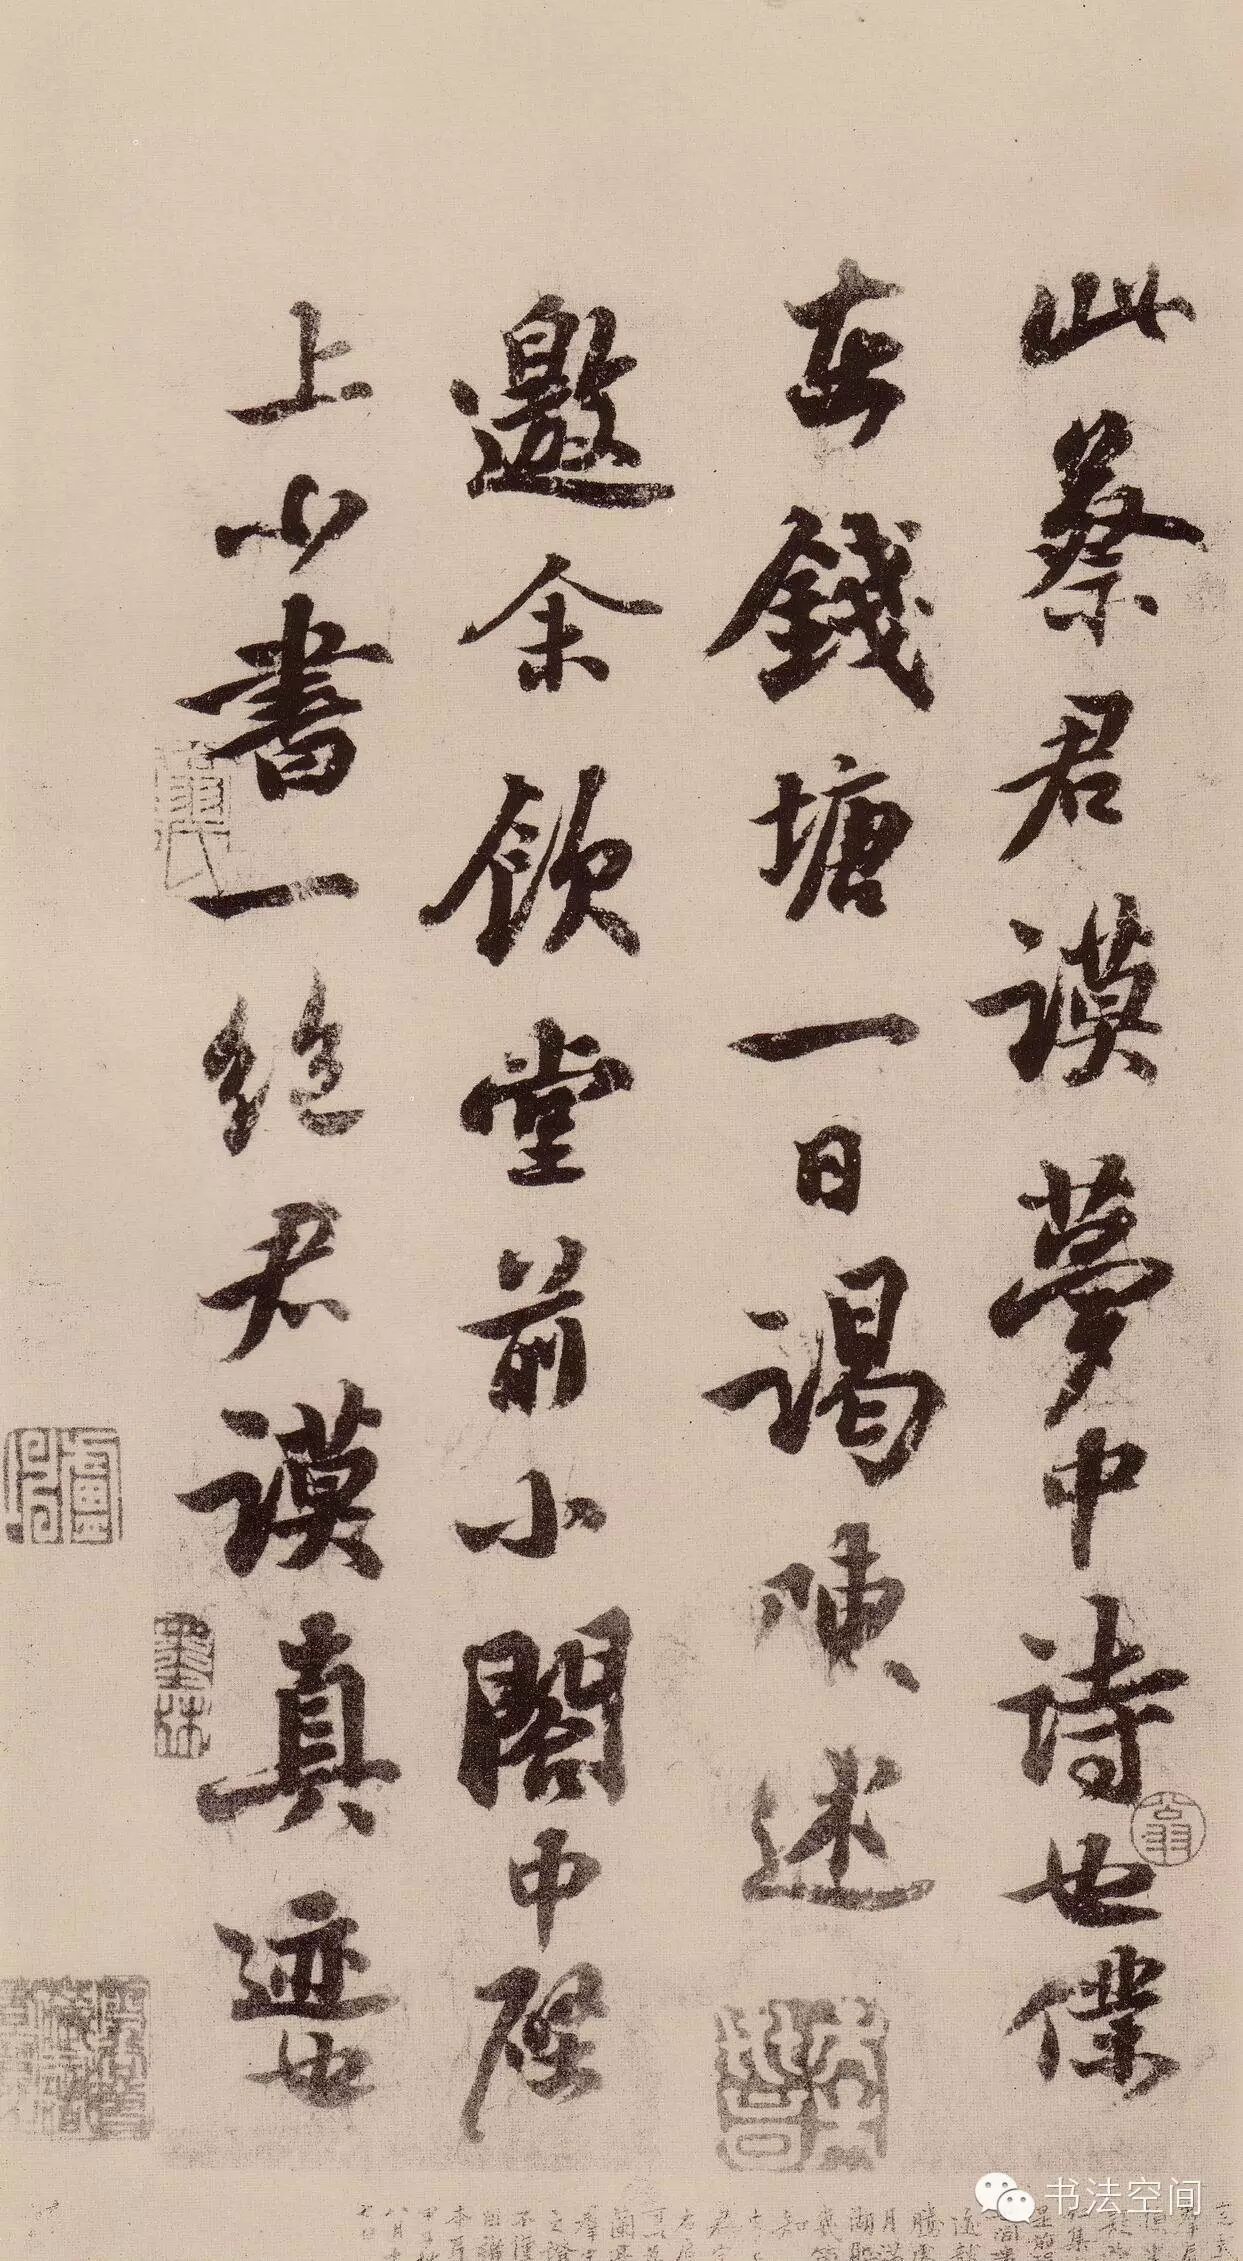 此蔡君谟夢中詩也僕
在錢塘一日謁陳述
邀余飲堂前小閣中壁
上小書一絶君谟真迹也
书法空间